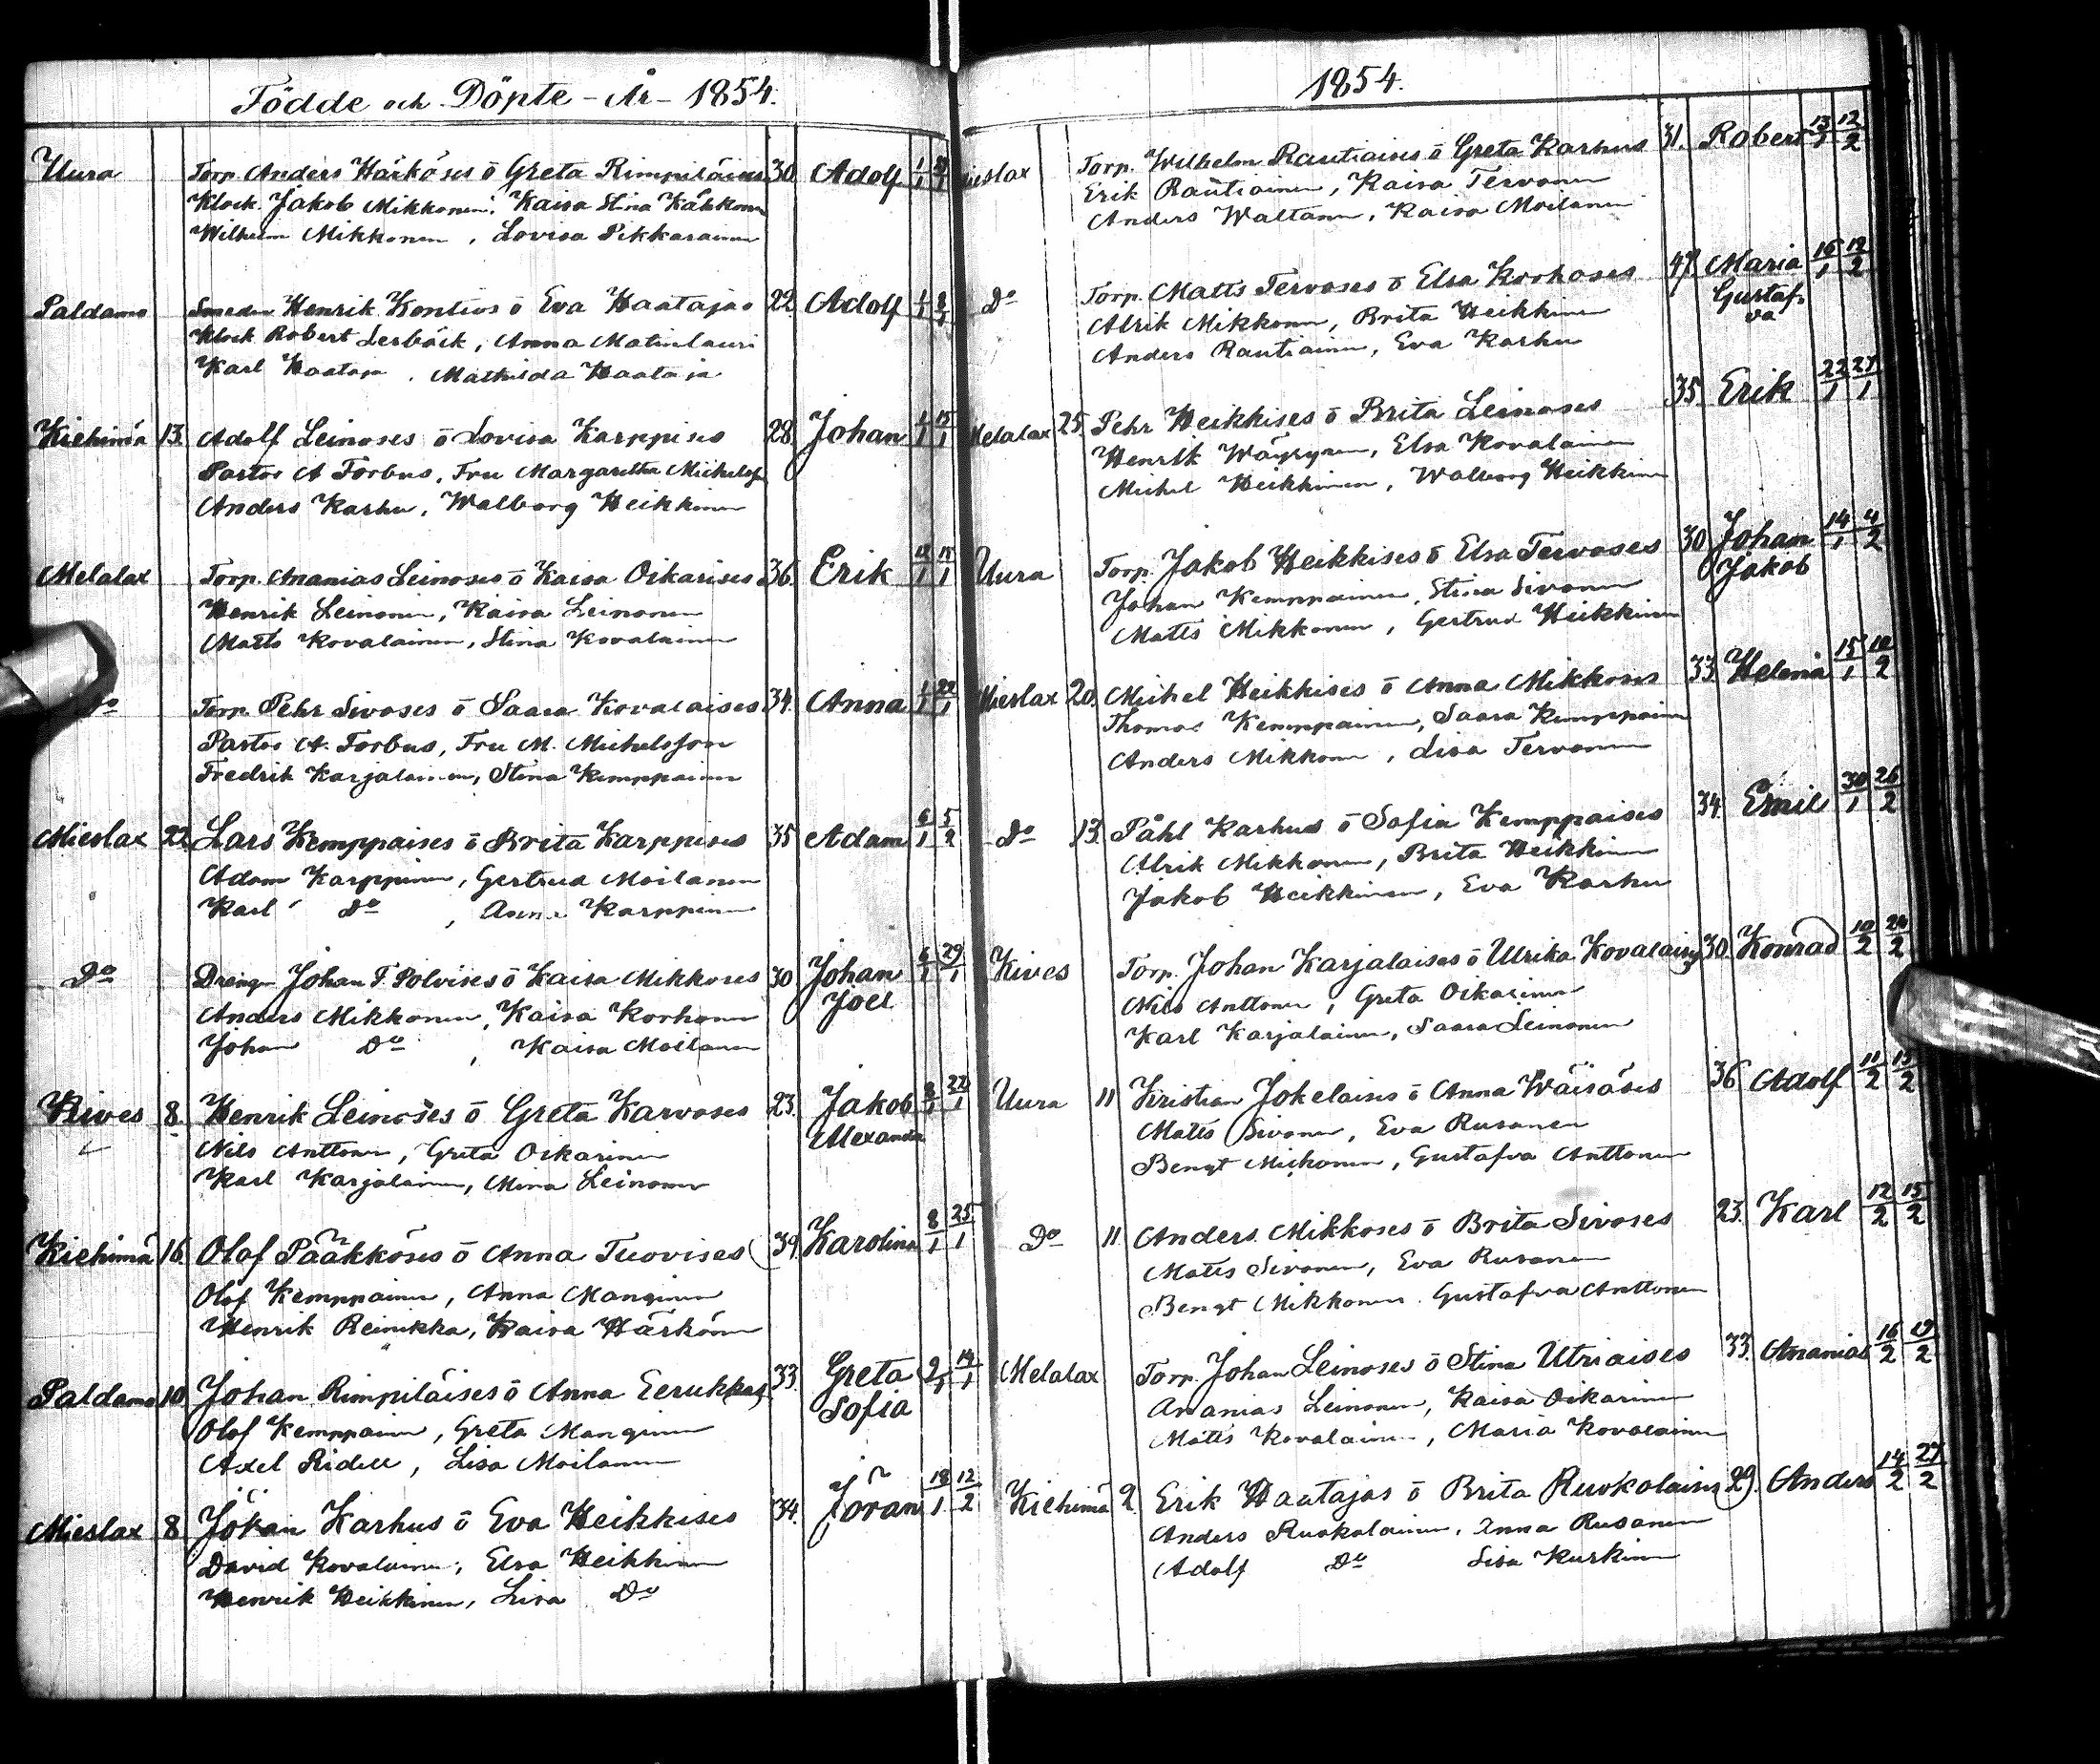 Födde och Döpte - År - 1854.
Uura Torp. Anders Härköses ō Greta Rimpiläises 30. Adolf 1/1
Klock. Jakob Mikkonen, Kaisa Stina Kähkönen
Wilhelm Mikkonen, Lovisa Pikkarainen
Paldamo Smeden Henrik Kontios ō Eva Haatajas 22. Adolf 1/1 8/1
Klock Robert Lerbäck, Anna Matinlauri
Karl Haataja, Mathilda Haataja
Kiehimä 13. Adolf Leinoses ō Lovisa Karppises 28. Johan 1/1 15/1
Pastor A Forbus, Fru Margaretha Michelsson
Anders Karhu, Walborg Heikkinen
Melalax Torp. Ananias Leinoses ō Kaisa Oikarises 36. Erik 12/1 15/1
Henrik Leinonen, Kaisa Leinonen
Matts Kovalainen, Stina Kovalainen
Do Torp. Pehr Sivoses ō Saara Kovalaises 34. Anna 1/1 22/1
Pastor A. Forbus, Fru M. Michelsson
Fredrik Karjalainen, Stina Kemppainen
Mieslax 22. Lars Kemppaises ō Brita Karppises 35 Adam 6/1 5/2
Adam Karppinen, Gertrud Moilanen
Karl Do, Anna Karppinen
Do Drengn Johan F. Polvises ō Kaisa Mikkoses 30 Johan Joel 6/1 29/1
Anders Mikkonen, Kaisa Korhonen
Johan Do, Kaisa Moilanen
Kives 8. Henrik Leinoses ō Greta Karvoses 23. Jakob Alexander 8/1 22/1
Nils Anttonen, Greta Oikarinen
Karl Karjalainen, Mina Leinonen
Kiehimä 16. Olof Pääkköses ō Anna Tuovises 39. Karolina 8/1 25/1
Olof Kemppainen, Anna Manginen
Henrik Reinikka, Kaisa Härkönen
Paldamo 10. Johan Rimpiläises ō Anna Eerukkas 33. Greta Sofia 9/1 14/1
Olof Kemppainen, Greta Manginen
Axel Ridell, Lisa Moilanen
Mieslax 8 Johan Karhus ō Eva Heikkises 34. Jöran 18/1 12/2
David Kovalainen, Elsa Heikkinen
Henrik Heikkinen, Lisa Do
1854.
Mieslax Torp. Wilhelm Rautiaises ō Greta Karhus 31. Robert 13/1 12/2
Erik Rautiainen, Kaisa Tervonen
Anders Waltanen, Kaisa Moilanen
Do Torp. Matts Tervoses ō Elsa Korhoses 47. Maria Gustafva 16/1 12/2
Alrik Mikkonen, Brita Heikkinen
Anders Rautiainen, Eva Karhu
Melalax 25. Pehr Heikkises ō Brita Leinoses 35. Erik 22/1 27/1
Henrik Wäyrynen, Elsa Kovalainen
Michel Heikkinen, Walborg Heikkinen
Uura Torp. Jakob Heikkises ō Elsa Tervoses 30 Johan Jakob 14/1 4/2
Johan Kemppainen, Stina Sivonen
Matts Mikkonen, Gertrud Heikkinen
Mieslax 20. Michel Heikkises ō Anna Mikkoses 33. Helena 15/1 10/2
Thomas Kemppainen, Saara Kemppainen
Anders Mikkonen, Lisa Tervonen
Do 13. Påhl Karhus ō Sofia Kemppaises 34. Emil 30/1 26/2
Alrik Mikkonen, Brita Heikkinen
Jakob Heikkinen, Eva Karhu
Kives Torp. Johan Karjalaises ō Ulrika Kovalaises 30. Konrad 10/2 24/2
Nils Anttonen, Greta Oikarinen
Karl Karjalainen, Saara Leinonen
Uura 11 Kristian Jokelaises ō Anna Wäisäses 36 Adolf 11/2 15/2
Matts Sivonen, Eva Rusanen
Bengt Mikkonen, Gustafva Anttonen
Do 11 Anders Mikkoses ō Brita Sivoses 23. Karl 12/2 15/2
Matts Sivonen, Eva Rusanen
Bengt Mikkonen, Gustafva Anttonen
Melalax Torp. Johan Leinoses ō Stina Utriaises 33. Ananias 16/2 19/2
Ananias Leinonen, Kaisa Oikarinen
Matts Kovalainen, Maria Kovalainen
Kiehimä 2. Erik Haatajas ō Brita Ruokolaises 29. Anders 14/2 27/2
Anders Ruokolainen, Anna Rusanen
Adolf Do Lisa Kurkinen